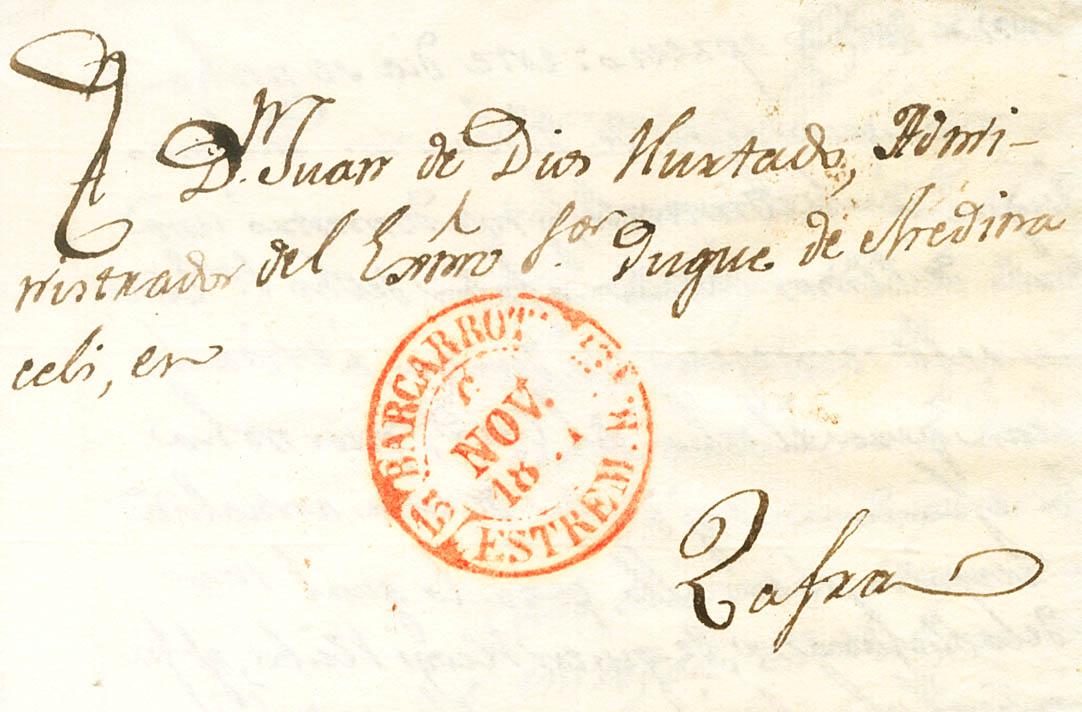 D.n Juan de Dios Hurtado, Admi-
nistrador del Exmo Sor Duque de Medina
celi, en
BARCARROT
NOV.
18
15
ESTREM.
Zafra